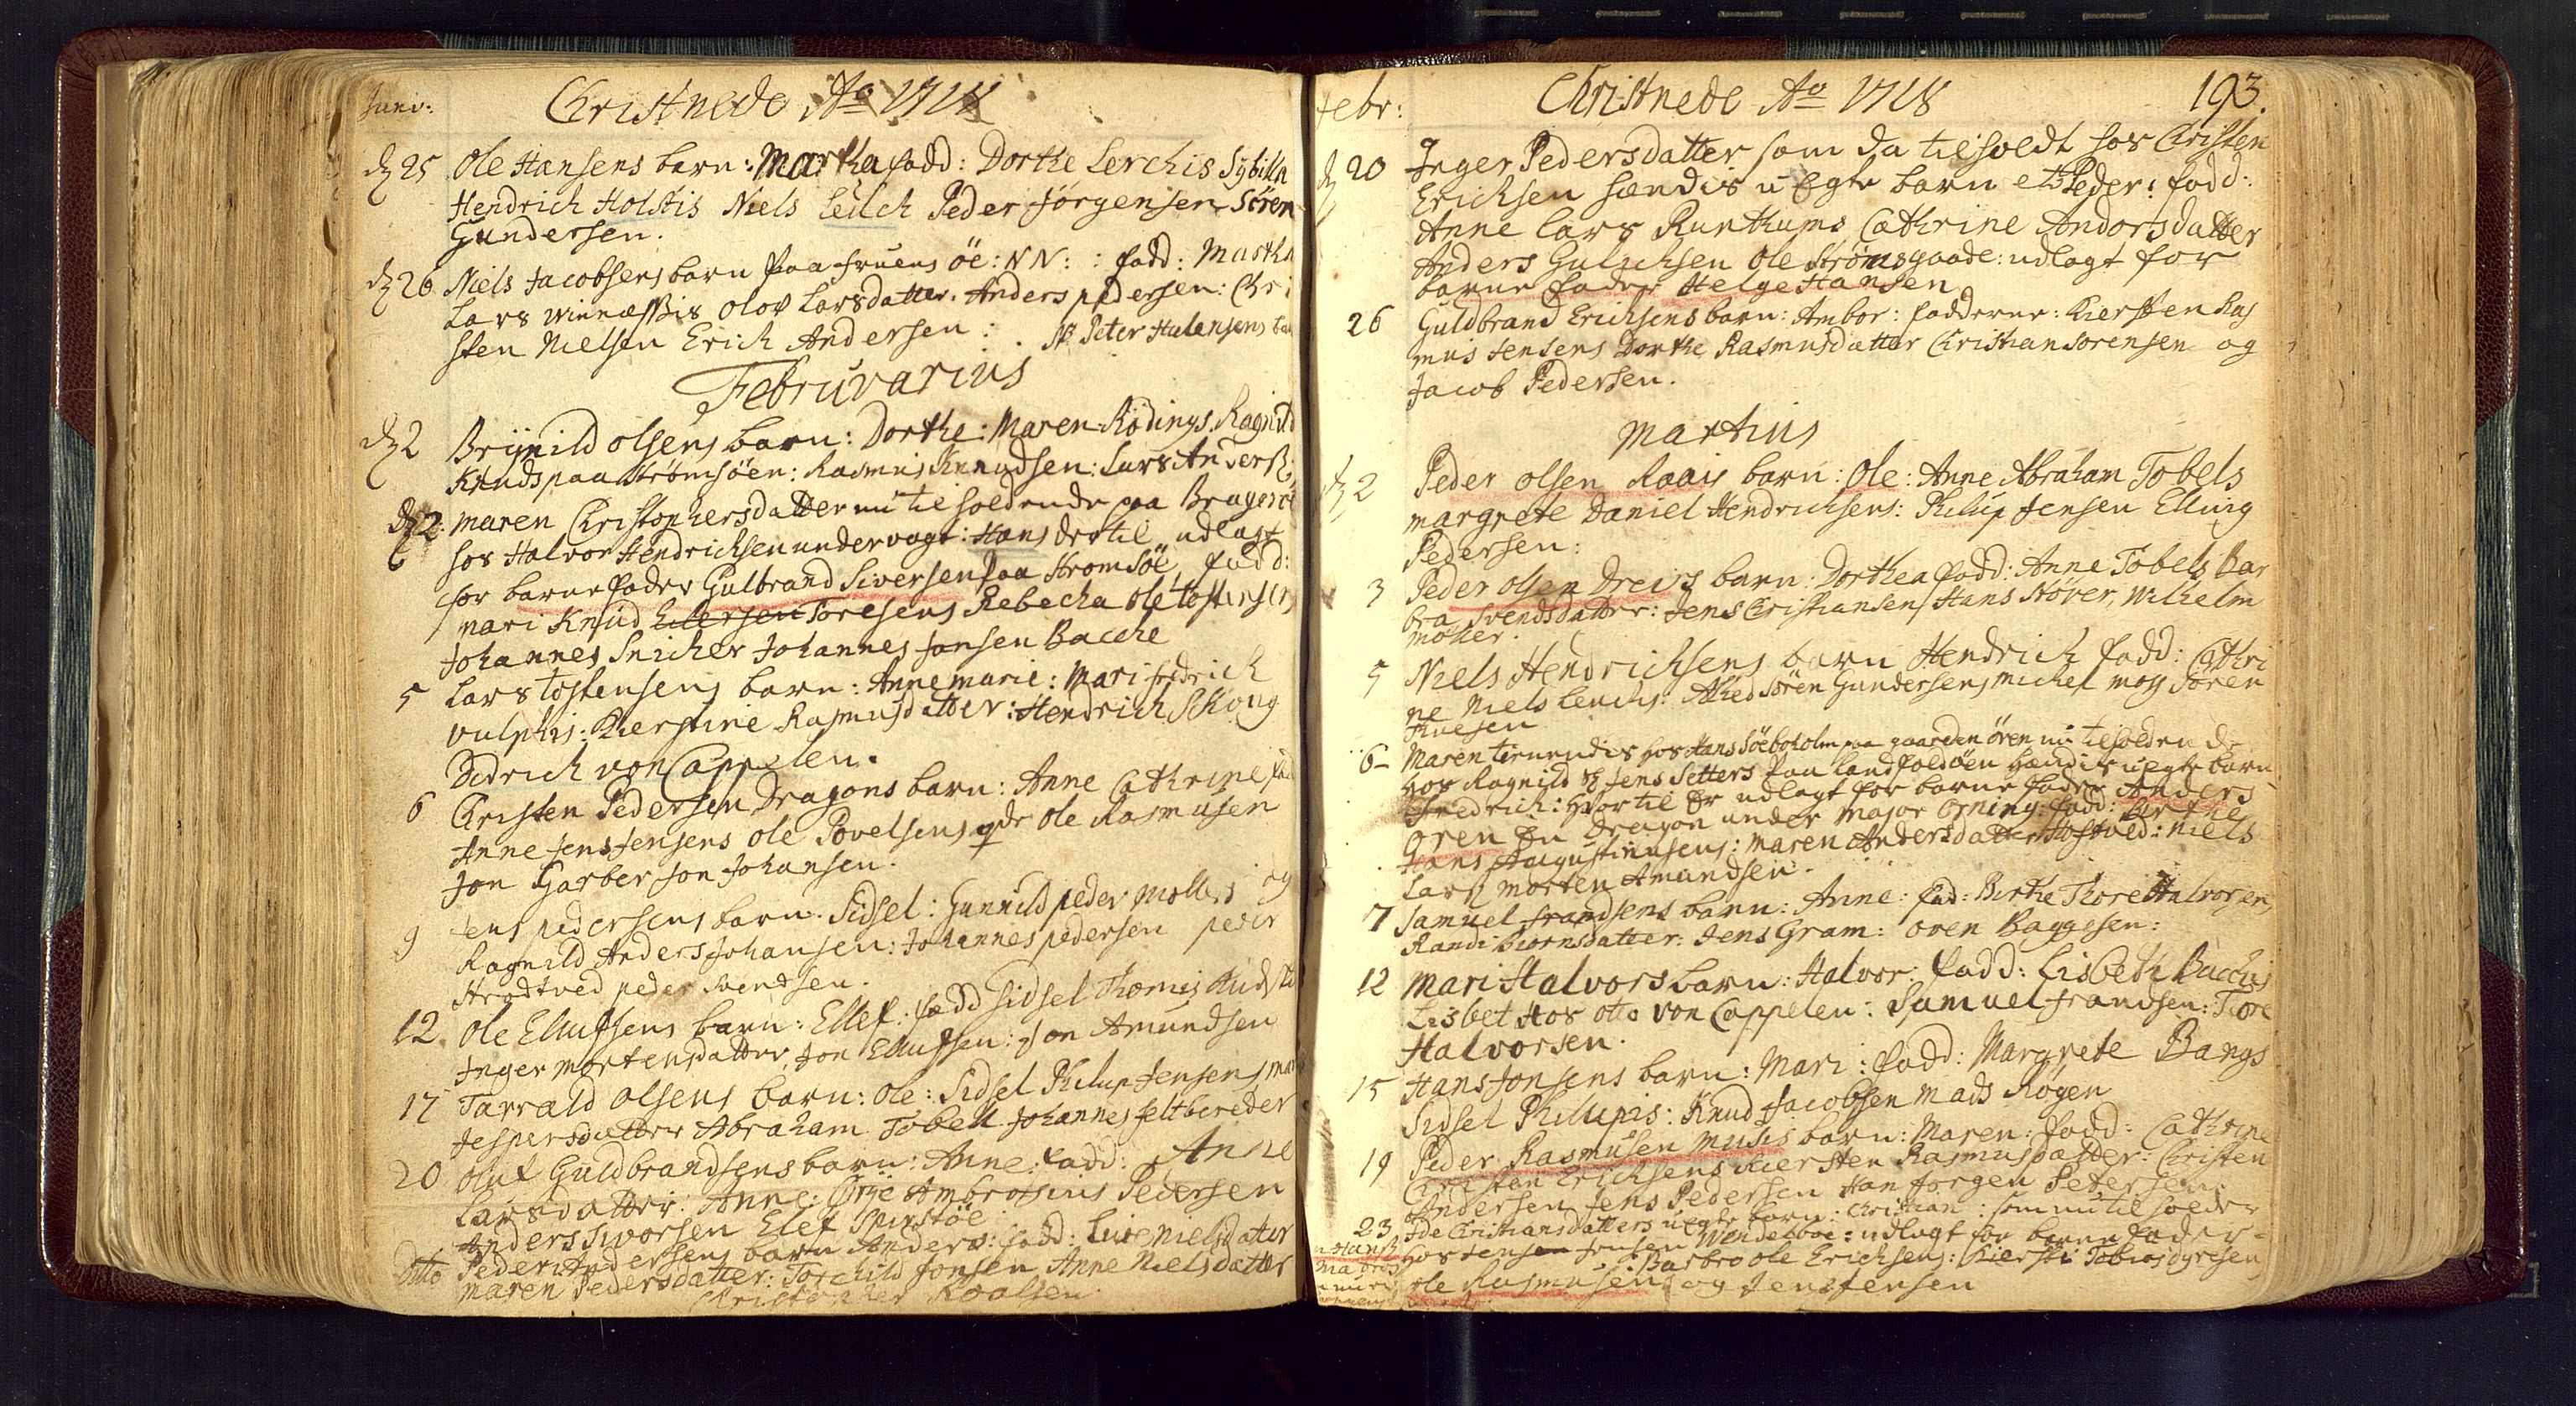 Christnede Ao 1718
d 25 Ole Hansens barn: Martha fadd: Dorthe Lerchis Sybilla
Hendrich Holstis Niels Leuch Peder Jörgensen Sören
Gundersen.
d 26 Niels Jacobsens barn paa fruens öe: NN: : fadd: Martha
Lars Olov Larsdatter. Anders pedersen: Chri
sten Nielsen Erich Andersen : . Peter
Februvarius
d 2 Brynild olsens barn: Dorthe: Maren Rödings. Ragnild
Knuds paa Strömsöen: Rasmus Knudsen: Lars Anderß:
d 2: Maren Christophersdatter nu tilholdende paa Bragernes
hos Halvor Hendrichsen under vagt: Hans dertil udlagt
for barnefader Gulbrand Siversen paa Stromsöe, fadd:
mari Knud Toresens Rebecha ole tostensens
Johannes Snicher Johannes Jonsen Bacche
5 Lars tostensens barn: Anne marie: Mari fredrich
vulphis: Kierstine Rasmusdatter: Hendrich Schong
Didrich von Cappelen.
6 Christen Pedersen Dragons barn: Anne Cathrine fad
Anne Jens Jensens ole Povelsens ole Rasmusen
Jon Garber Jon Johansen.
9 Jens pedersens barn. Sidsel: Gunnild peder Mollers og
Ragnild Anders Johansen: Johannes pedersen peder
Stradtved peder Svendsen.
12. Ole Ellufsens barn: Ellef: fadd Sidsel Thomis
Inger Mortensdatter, Jon Ellufsen: Jon Amundsen
17 Tarrald olsens barn: ole: Sidsel Philup Jensens mar
Jespersdatter Abraham Tobell Johannes feltbereder
20 oluf Guldbrandsens barn: Anne: fadd: Anne
Larsdatter: Anne: Ambrosius Pedersen
Anders Sivorsen Elef
Ditto Peder Andersens barn Anders: fadd: Lisse nielsdatter
Maren Pedersdatter: Torchild Jonsen Anne Nielsdatter
Christopher Roalsen.
Febr: Christnede Ao 1718 193.
d 20 Inger Pedersdatter som da tilholdt hos Christen
Erichsen hændis u Egte barn Peder: fadd:
Anne Lars Runthums Cathrine Andorsdatter
Anders Gulichsen Ole Strömsgaade: udlagt for
barne fader Helge Hansen
26 Guldbrand Erichsens barn: Ambor: fadderne: Kiersten Ras
mus Jensens Dorthe Rasmusdatter Christian Sorensen og
Jacob Pedersen.
Martius
d 2 Peder olsen Raais barn: Ole: Anne Abraham Tobels
margrete Daniel Hendrichsens: Philup Jensen Elling
Pedersen:
3 Peder olsen Dreiers barn: Dorthea fadd: Anne Tobels Bar
bra Svendsdatter: Jens Christiansen Hans Störer, Wilhelm
moller.
5 Niels Hendrichsens barn Hendrich fadd: Cathri
ne Niels Leuchs: Sören Gundersens Michel Moss Sören

6 Maren tienendis hos Hans Söebokolm paa gaarden ören nu tilholdende
hos Ragnild Jens Setters paa Landfaldöen hændis uegte barn
Fredrich: hvortil Er udlagt for barne fader Anders
oren En Dragon under Major fadd: Birthe
Hans Augustinusens: Maren Andersdatter Hostved: Niels
Lars Morten Amundsen.
7 Samuel frandsens barn: Anne: fad: Birthe Thore Halvorsens
Randi biornsdatter: Jens Gram: oven Baggesen:
12 Mari Halvors barn: Halvor: fadd: Lisbeth Bacchis
Lisbet Hos otto von Cappelen: Samuel frandsen: Tore
Halvorsen.
15 Hans Jonsens barn: Mari: fadd: Margrete Bangs
Sidsel Philupis: Knud Jacobsen Mads Rögen
19 Peder Rasmusen Musis barn: Maren: fadd: Cathrine
Christen Erichsens Kiersten Rasmusdatter: Christen
Andersen Jens Pedersen Jörgen Petersen
23 Ide Christiansdatters uegte barn: Christian: som nu tilholder
hos Jensen Wendelboe: udlagt for barne fader
: Barbro ole Erichsens: Kiersti Tobias dyresen
ole Rasmusen og Jens Jensen